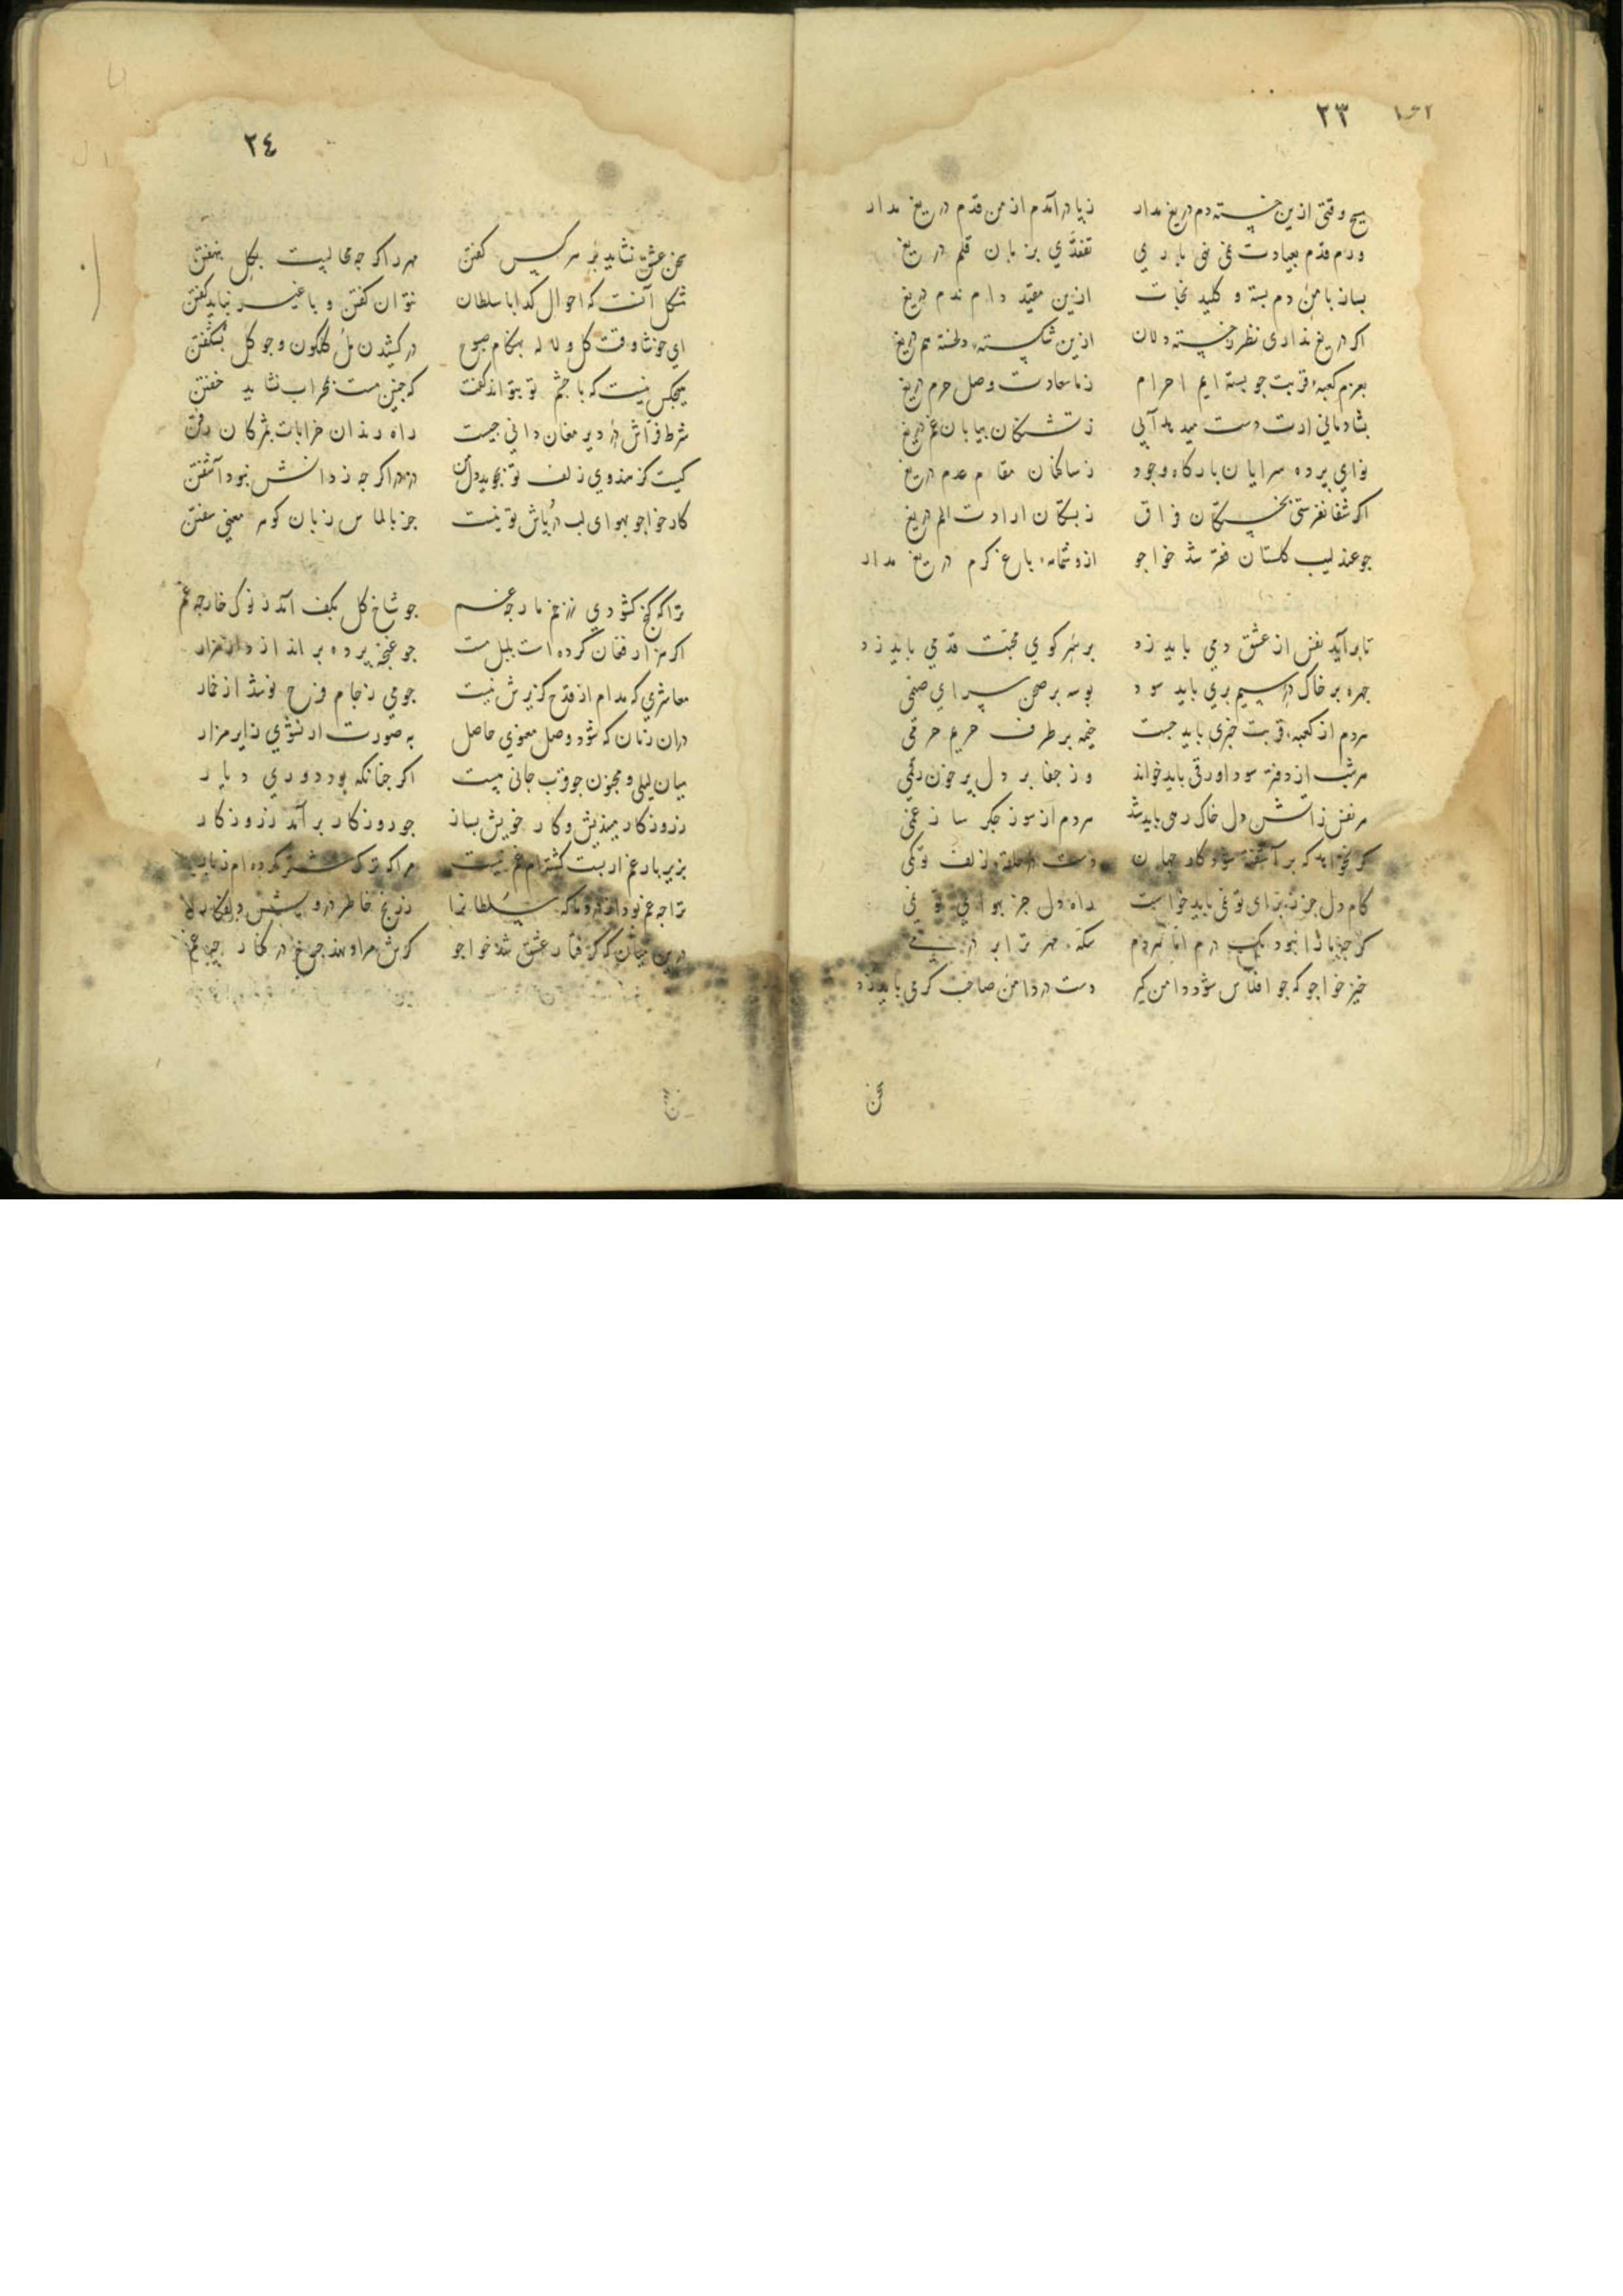 ٢٣
هیچ وقتی ازین خسته دم دریغ مدار ز پا درآمدم از من قدم دریغ مدار
ورم قدم بعیادت نمی نهی باری تفقدی بزبان قلم دریغ
بساز با من دم بسته و کلید نجات ازین مقید دام ندم دریغ
اکر دریغ نداری نظر ز خسته دلان ازین شکسته دلخسته هم دریغ
بعزم کعبه قربت جو بسته ایم احرام ز ما سعادت وصل حرم دریغ
بشادمانی ارت دست میدهد آبی ز تشنکان بیابان غم دریغ
نوای پرده سرایان بارکاه وجود ز ساکنان مقام عدم دریغ
اکر شفا نفرستی بخستکان فراق ز بستکان ارادت الم دریغ
جو عندلیب کلستان فقر شد خواجو ازو شمامه باغ کرم دریغ مدار
تا برآید نفس از عشق دمی باید زد بر سر کوی محبت قدمی باید زد
جهره بر خاک در سیم بری باید سود بوسه بر صحن سرای صنمی
هردم از کعبه قربت خبری باید جست خیمه بر طرف حریم حرمی
هر شب از دفتر سودا ورقی باید خواند وز جفا بر دل پرخون رقمی
هر نفس ز آتش دل خاک رهی باید شد هردم از سوز جکر ساز غمی
کر نخواهد که بر آشفته شود کار جهان دست در حلقه زلف تو کمی
کام دل جز ز برای تو نمی باید خواست راه دل جز بهوای تو نمی
کر جه ما را نبود یک درم اما هردم سکه مهر ترا بر درمی
خیز خواجو که جو افلاس شود دامن کیر دست در دامن صاحب کرمی باید زد
سخن
٢٤
سخن عشق نشاید بر هر کس کفتن مهر را کر جه محالیست بکل بنهفتن
مشکل آنست که احوال کدا با سلطان نتوان کفتن و با غیر نیاید کفتن
ای خوشا وقت کل و لاله بهنکام صبوح در کشیدن مل کلکون و جو کل بشکفتن
هیجکس نیست که با جشم تو بتواند کفت که جنین مست بمحراب نشاید خفتن
شرط فراش در دیر مغان دانی جیست راه رندان خرابات بمژکان رفتن
کیست کز هندوی زلف تو نجوید دل من دزد را کر جه ز دانش نبود آشفتن
کار خواجو بهوای لب درپاش تو نیست جز بالماس زبان کوهر معنی سفتن
ترا که کنج کشودی ز زخم مار جه غم جو شاخ کل بکف آمد ز نوک خار جه غم
اکر هزار فغان کرده است بلبل مست جو غنجه پرده براندازد از هزار
معاشری که مدام از قدح کزیرش نیست جو می ز جام فرح نوشد از خمار
در آن زمان که شود وصل معنوی حاصل به صورت ار نشوی زایر مزار
میان لیلی و مجنون جو قرب جانی هست اکر جنانکه بود دوری دیار
ز روزکار میندیش و کار خویش بساز جو روزکار برآمد ز روزکار
بزیر بار غم ار بست کشته ام غم نیست مرا که ترک شتر کرده ام ز بار
ترا جه غم بود از درد ما که سلطانرا ز رنج خاطر درویش دلفکار
درین میان که کرفتار عشق شد خواجو کرش مراد نهد جرخ در کنار جه غم